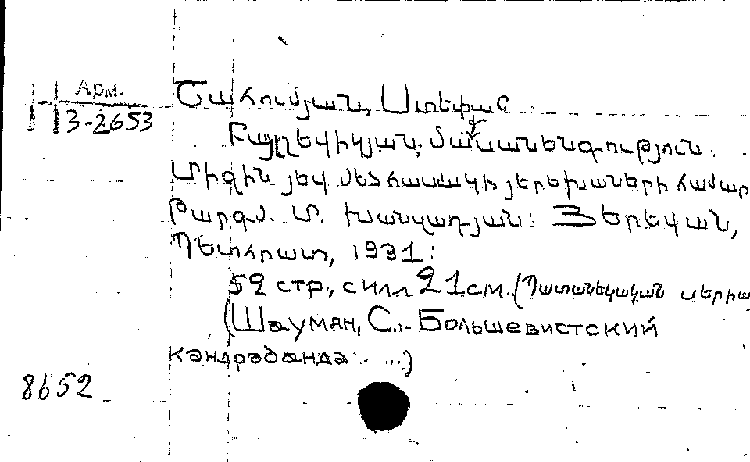 Арм.
3-2653
Շահումյան, Ստեփան
Բայլշևիկյան մաքսանենգություն:
Միջին յեվ մեծ հասակի յերեխաների համար
Թարգմ. Մ. Խանզադյան: Յերեվան,
Պետհրատ, 1931:
52 стр., с илл. 21 см. (Պատանեկական սերիա
(Шаумян, С.,- Большевистский
контрабанда ...)
8652